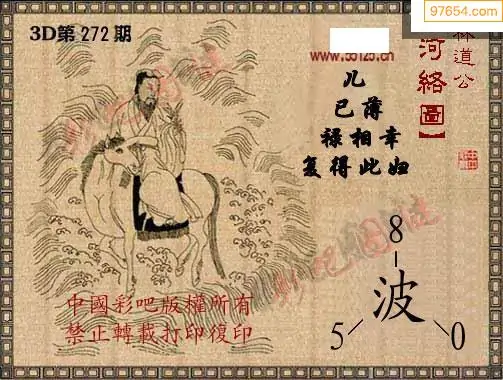 97654.com
3D第272期
www.55125.cn
林道公
河络圖】
儿
已薄
禄相幸
复得此妇
8
波
5
0
彩吧图说
彩吧图说
中國彩吧版權所有
禁止轉載打印復印